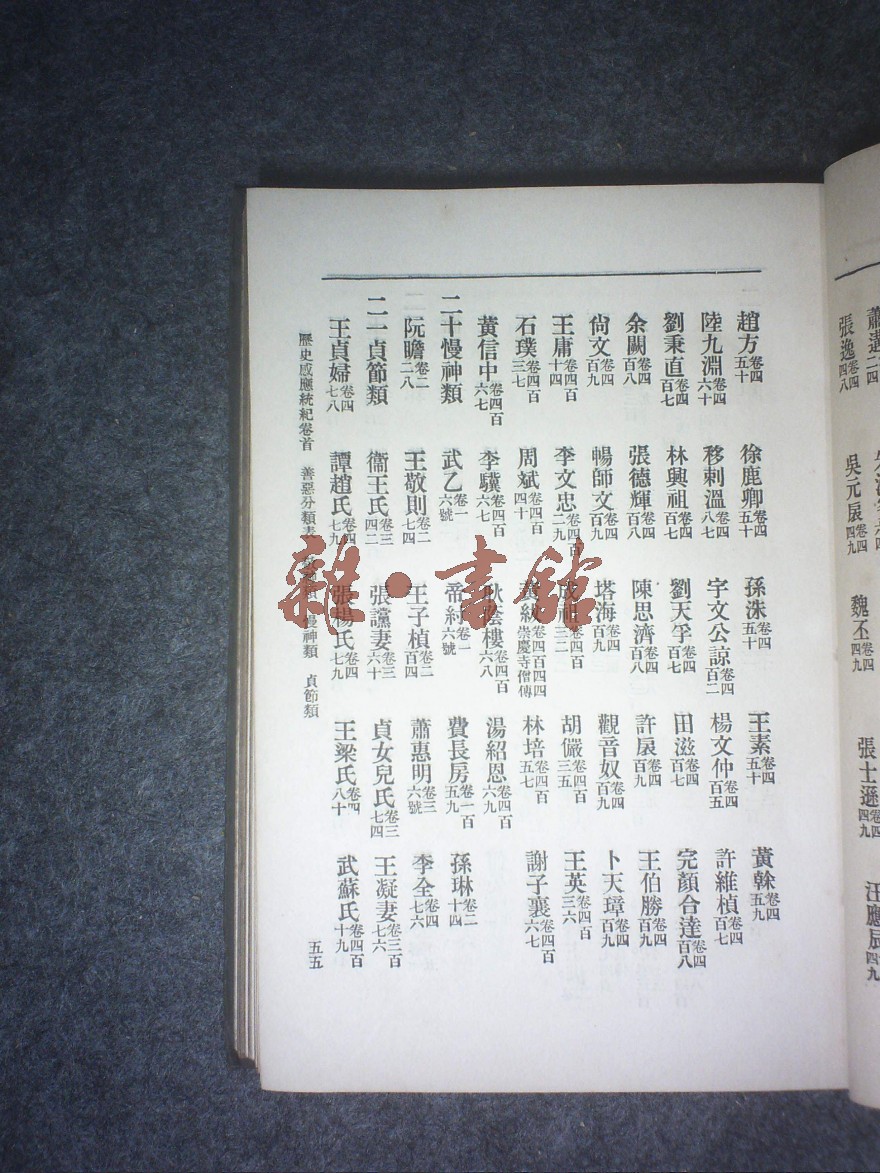 蕭遘二四
張逸卷四四八
吳元扆卷四四九
魏丕卷四四九
張士遜卷四四九
汪應辰四十九
趙方卷四五十
徐鹿卿卷四五十
孫洙卷四五十
王素卷四五十
黃榦卷四五九
陸九淵卷四六十
移剌溫卷四八七
宇文公諒卷四百二
楊文仲卷四百五
許維楨卷四百七
劉秉直卷四百七
林興祖卷四百七
劉天孚卷四百七
田滋卷四百七
完顏合達卷四百八
余闕卷四百八
張德輝卷四百八
陳思濟卷四百八
許扆卷四百九
王伯勝卷四百九
尙文卷四百九
暢師文卷四百九
塔海卷四百九
觀音奴卷四百九
卜天璋卷四百九
王庸卷四百十四
李文忠卷四百二九
成祖卷四百三二
胡儼卷四百三五
王英卷四百三六
石璞卷四百三七
周斌卷四百四十
黃紱卷四百四四崇慶寺僧傳
林培卷四百五七
謝子襄卷四百六七
黃信中卷四百六七
李驥卷四百六七
耿蔭樓卷四百六八
湯紹恩卷四百六九
二十慢神類
武乙卷一六號
帝紂卷一六號
費長房卷一百五九
孫琳卷二十四
阮瞻卷二二八
王敬則卷二七四
王子楨卷二百四
蕭惠明卷三六號
李全卷四七六
二一貞節類
衞王氏卷三四二
張讜妻卷三六十
貞女兒氏卷三七四
王凝妻卷三百七六
王貞婦卷四七八
譚趙氏卷四七九
張楊氏卷四七九
王梁氏卷四八十
武蘇氏卷四百十九
歷史感應統紀卷首　善惡分類表　慢神類　貞節類
五五
雜・書館